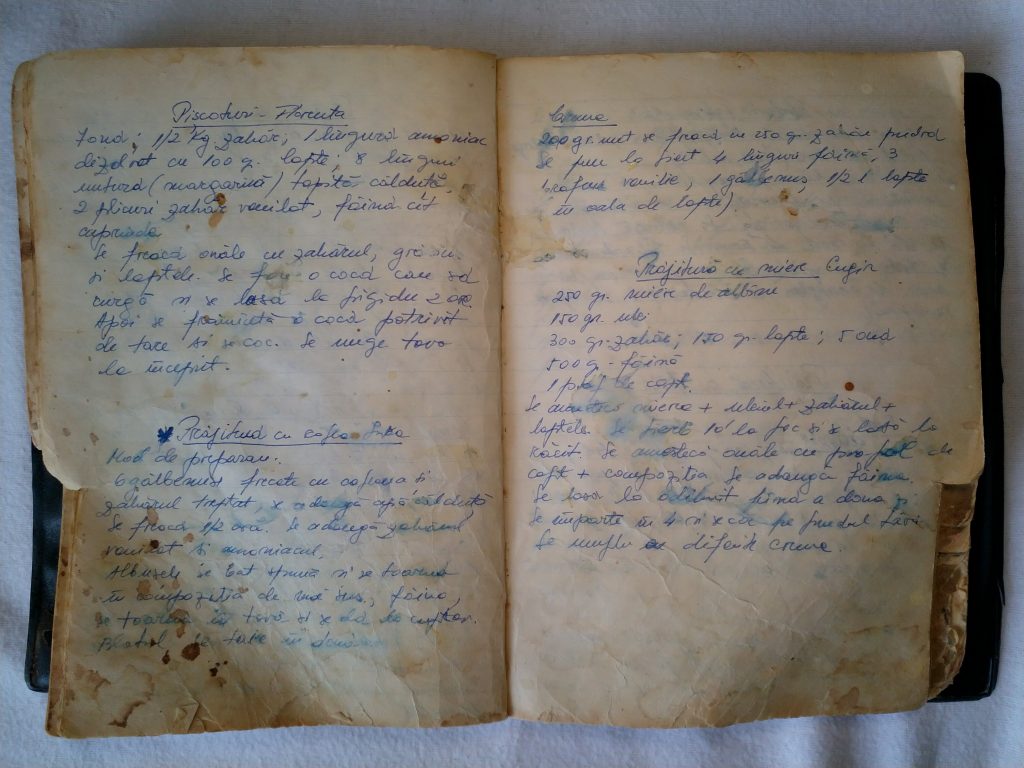 Piscoturi - Florenta
1/2 Kg. zahăr; 1 lingură amoniac
dizolvat cu 100 g. lapte; 8 linguri
untură (margarină) topită călduță,
2 plicuri zahăr vanilat, făină cît
cuprinde
Se freacă ouăle cu zahărul,
și laptele. Se face o cocă care să
curgă și se lasă la frigider 2 ore.
Apoi se frămîntă o cocă potrivit
de tare și se coc. Se unge tava
la început.
Prăjitură cu cafea
Mod de preparare.
6 gălbenuș frecate cu cafeaua și
zahărul treptat, se adaugă apă călduță
Se freacă 1/2 oră. Se adaugă zahărul
vanilat și amoniacul,
Albușele se bat spumă și se toarnă
în compoziția de mai sus, făina,
se toarnă în tavă și se dă la cuptor.
Blatul se taie în
Crema
200 gr. unt se freacă cu 250 gr. zahăr pudră
Se pun la fiert 4 linguri făină, 3
prafuri vanilie, 1 gălbenuș, 1/2 l lapte
în oala de lapte).
Prăjitură cu miere
250 gr. miere de albine
150 gr. ulei
300 gr. zahăr; 150 gr. lapte; 5 ouă
500 g. făină
1 praf de copt.
Se amestecă mierea + uleiul + zahărul +
laptele. Se fierb 10' la foc și se lasă la
răcit. Se amestecă ouăle cu praful de
copt + compoziția Se adaugă făina.
Se lasă la odihnit pînă a doua zi
Se împarte în 4 și se coc pe fundul tăvii
Se umple cu diferite creme.